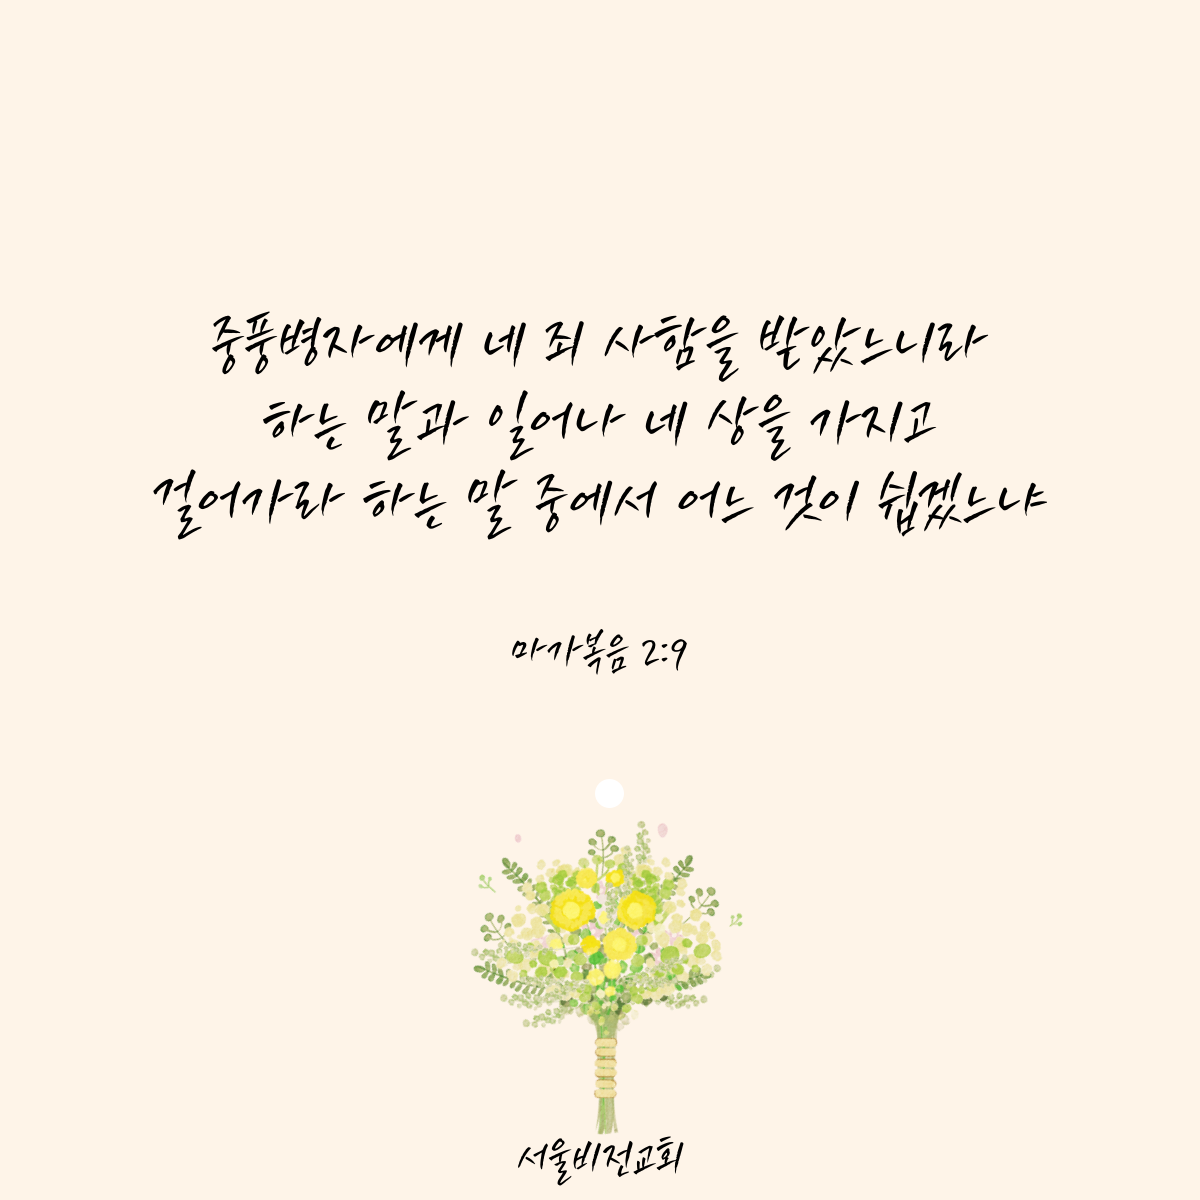 중풍병자에게 네 죄 사함을 받았느니라
하는 말과 일어나 네 상을 가지고
걸어가라 하는 말 중에서 어느 것이 쉽겠느냐
마가복음 2:9
서울비전교회